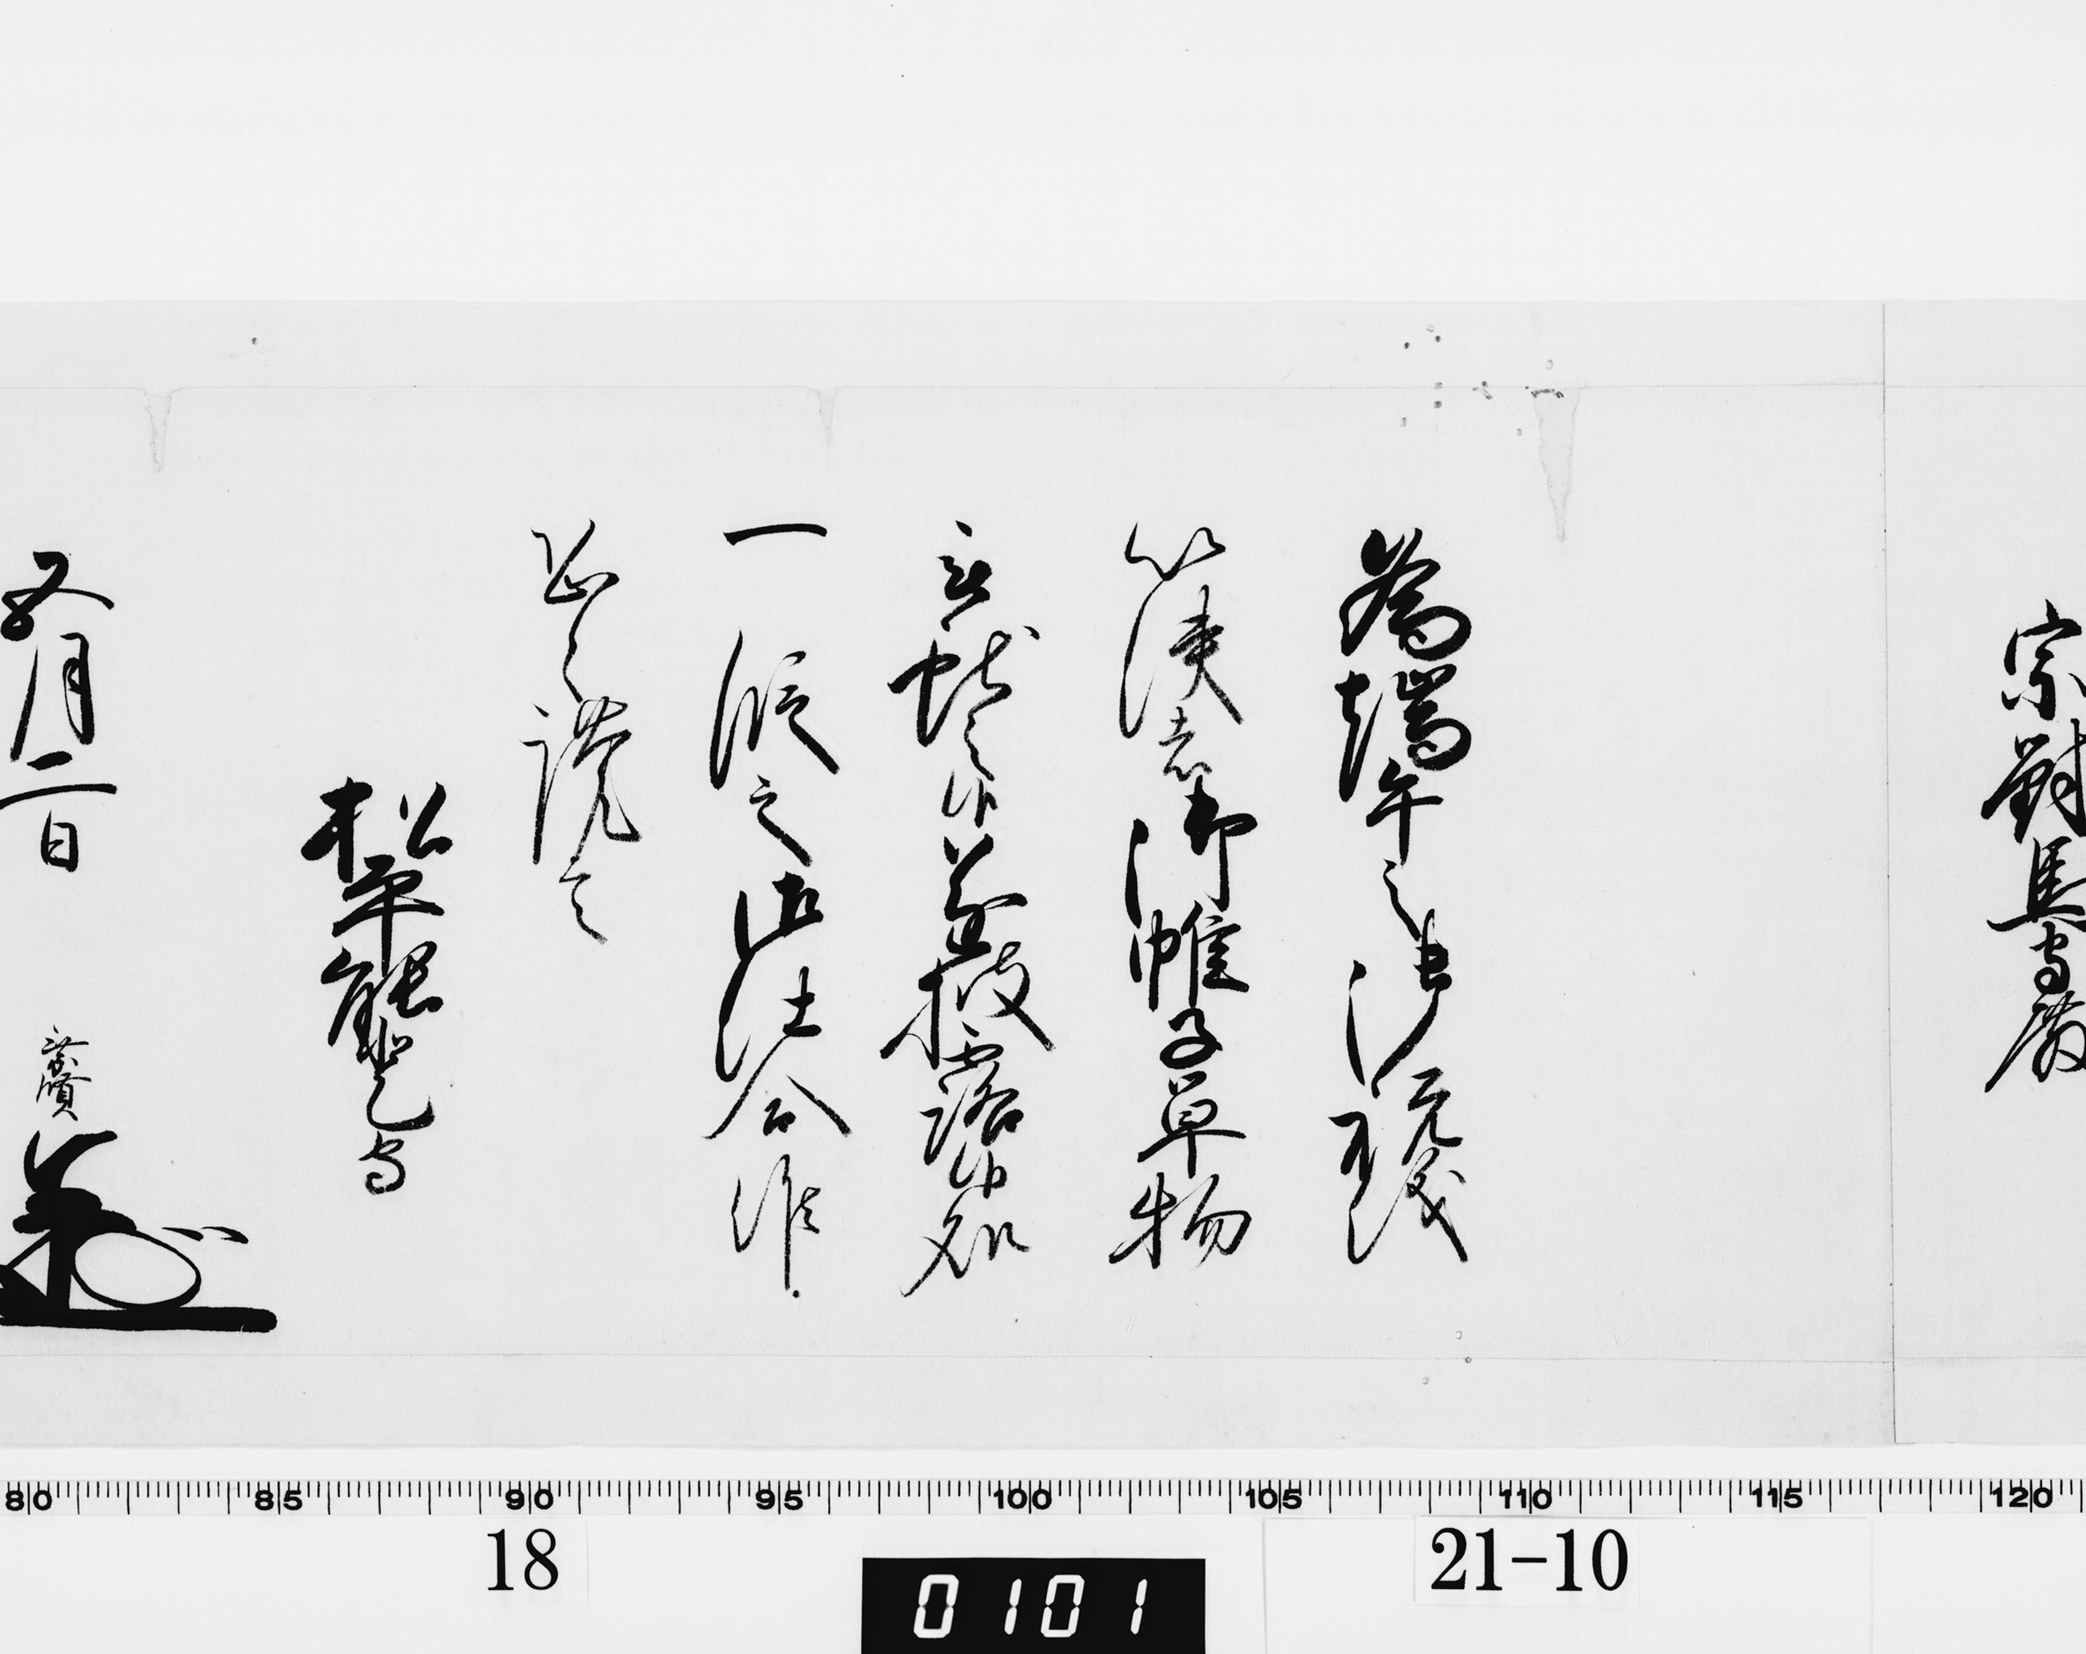 宗對馬守殿
為端午之御祝儀
以使者御帷子單物
被獻之候遂披露候処
一段之御仕合候
恐々謹言
松平能登守
五月二日
乗賢
80 85 90 95 100 105 110 115 120
18
0101
21-10